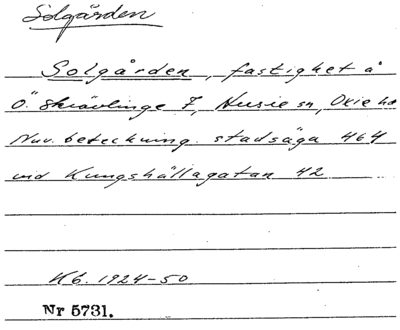 Solgården
Solgården, fastighet å
Ö. Skrävlinge 7, Husie sn, Oxie hd
Nuv. beteckning stadsäga 464
vid Kungshällagatan 42
Kb. 1924-50
Nr 5731.